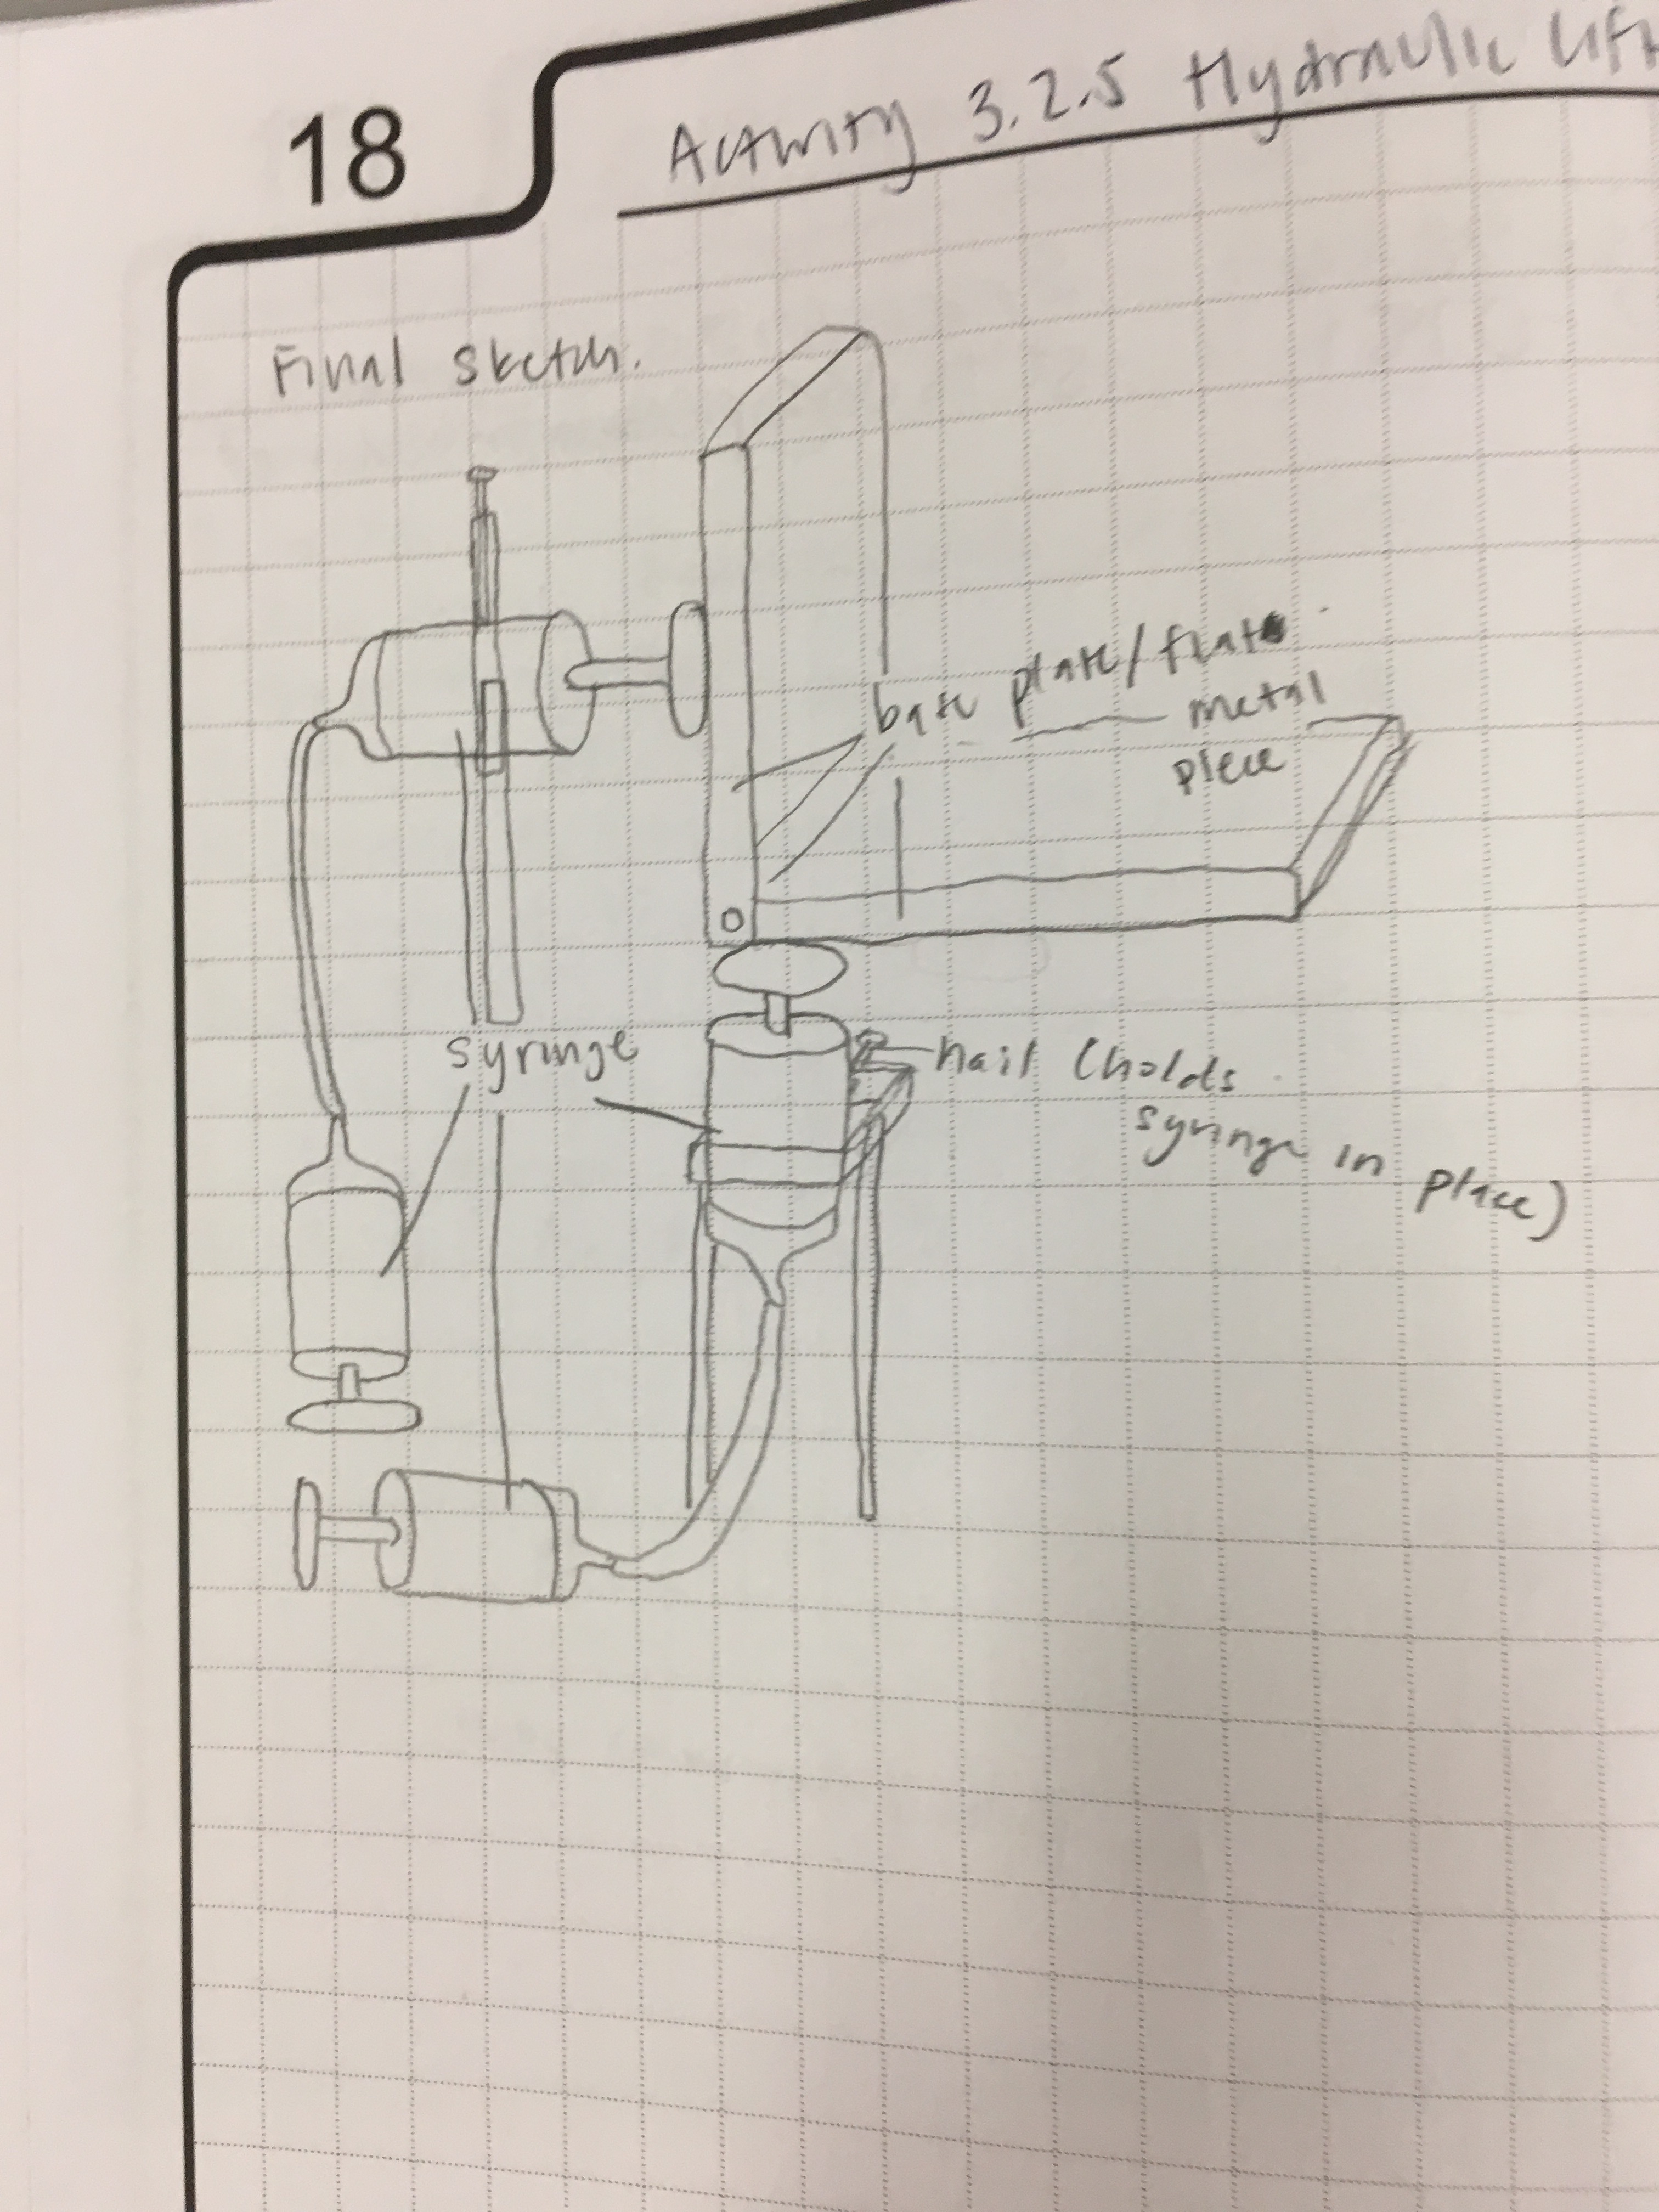 18
Activity 3.2.5 Hydraulic Lift
Final Sketch.
base plate/flat
metal
piece
syringe
nail (holds
syringe in place)